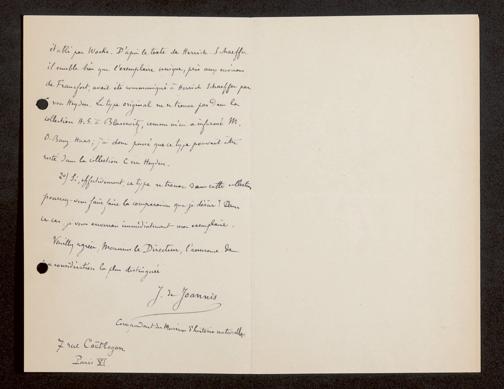 établi par Wocke. D'après le texte de Herrich-Schaeffer
il semble bien que l'exemplaire unique, pris aux environs
de Francfort, avait été communiqué à Herrich Schaeffer par
von Heyden. Le type original ne se trouve pas dans la
collection H. S. à Blasewitz, comme m'en a informé M.
O. Bang Haas; j'ai donc pensé que ce type pouvait être
resté dans la collection C. von Heyden.
2o/ Si, effectivement ce type se trouve dans cette collection
pourrez-vous faire faire la comparaison que je désire? Dans
ce cas, je vous enverrai immédiatement mon exemplaire.
Veuillez agréer, Monsieur le Directeur, l'assurance de
ma considération la plus distinguée
J. de Joannis
Correspondant du Muséum d'histoire naturelle,
7 rue Coëtlogon
Paris VI